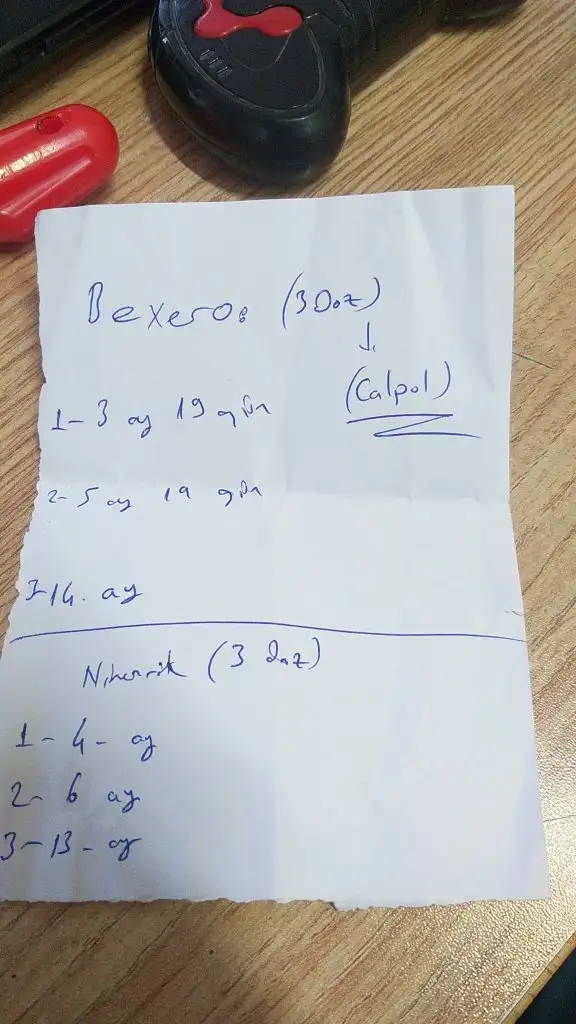 Bexsero: (3 Doz)
↓
(Calpol)
1- 3 ay 19 gün
2- 5 ay 19 gün
3-14. ay
Nimenrix (3 doz)
1- 4- ay
2- 6 ay
3-13- ay